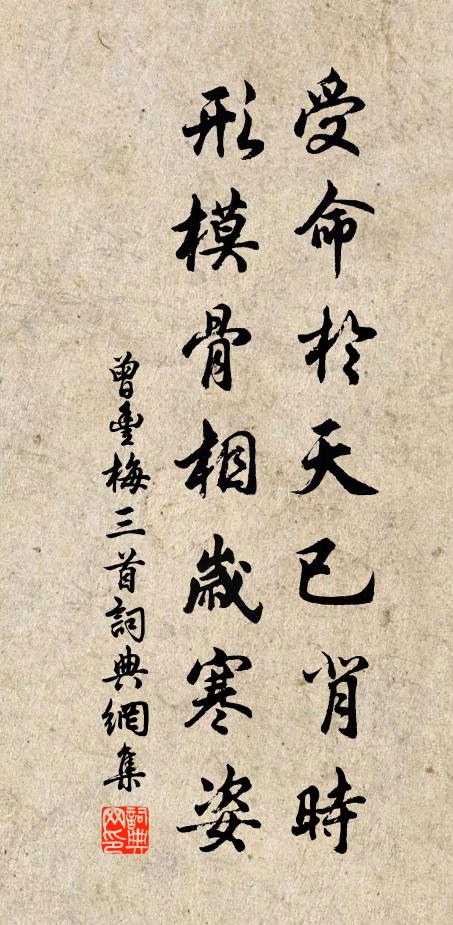 受命於天已背時
形模骨相歲寒姿
曾豐梅三首詞典網集
詞典
网印